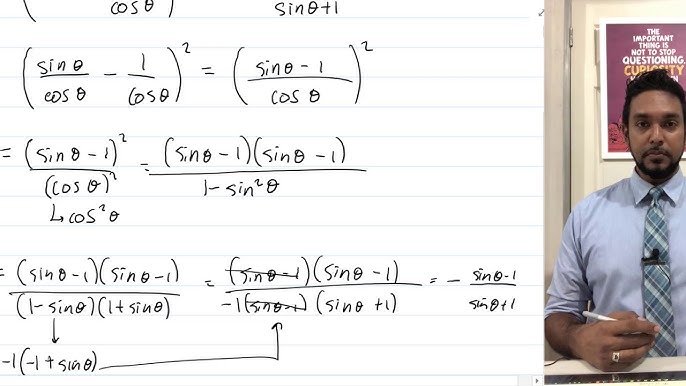 cosθ / sinθ+1
(sinθ/cosθ − 1/cosθ)² = (sinθ − 1 / cosθ)²
= (sinθ − 1)² / (cosθ)² = (sinθ − 1)(sinθ − 1) / 1 − sin²θ
↳ cos²θ
= (sinθ − 1)(sinθ − 1) / (1 − sinθ)(1 + sinθ) = (sinθ − 1)(sinθ − 1) / −1(sinθ − 1)(sinθ + 1) = − sinθ−1 / sinθ+1
−1(−1 + sinθ)
THE
IMPORTANT
THING IS
NOT TO STOP
QUESTIONING.
CURIOSITY